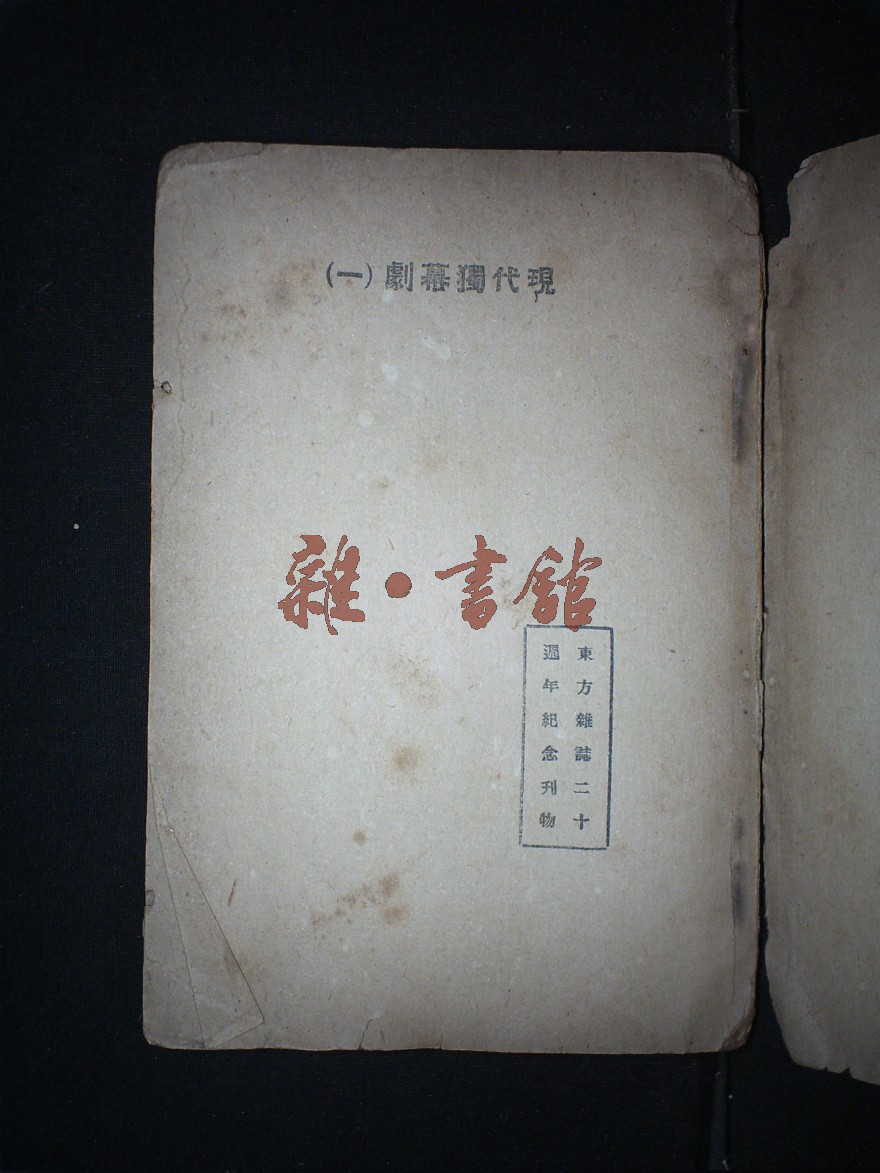 現代獨幕劇(一)
雜•書館
東方雜誌二十
週年紀念刊物